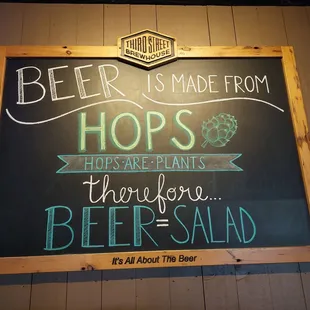 THIRD STREET
BREWHOUSE
BEER IS MADE FROM
HOPS
HOPS·ARE·PLANTS
therefore...
BEER=SALAD
It's All About The Beer